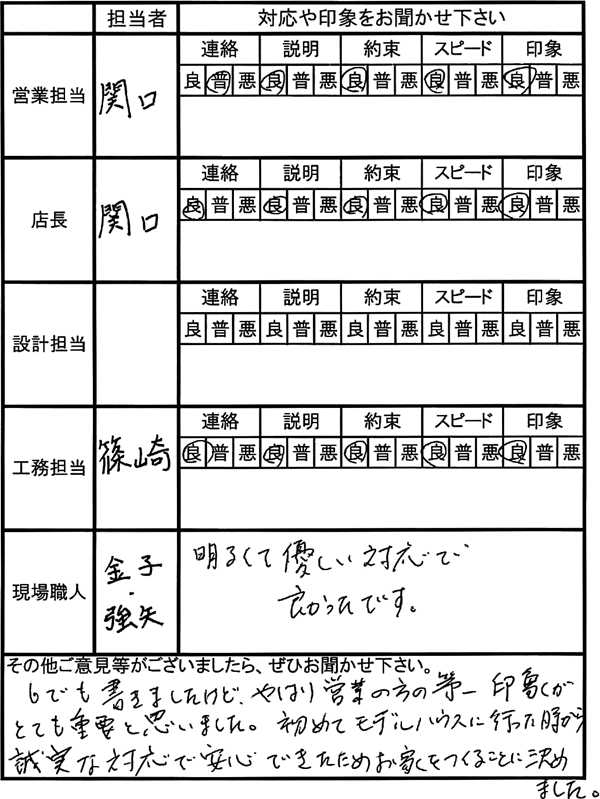 担当者 対応や印象をお聞かせ下さい
営業担当 関口
連絡 説明 約束 スピード 印象
良 普 悪 良 普 悪 良 普 悪 良 普 悪 良 普 悪
店長 関口
連絡 説明 約束 スピード 印象
良 普 悪 良 普 悪 良 普 悪 良 普 悪 良 普 悪
設計担当
連絡 説明 約束 スピード 印象
良 普 悪 良 普 悪 良 普 悪 良 普 悪 良 普 悪
工務担当 篠崎
連絡 説明 約束 スピード 印象
良 普 悪 良 普 悪 良 普 悪 良 普 悪 良 普 悪
現場職人
金子
・
強矢
明るくて優しい対応で
良かったです。
その他ご意見等がございましたら、ぜひお聞かせ下さい。
6でも書きましたけど、やはり営業の方の第一印象が
とても重要と思いました。初めてモデルハウスに行った時から
誠実な対応で安心できたためお家をつくることに決め
ました。